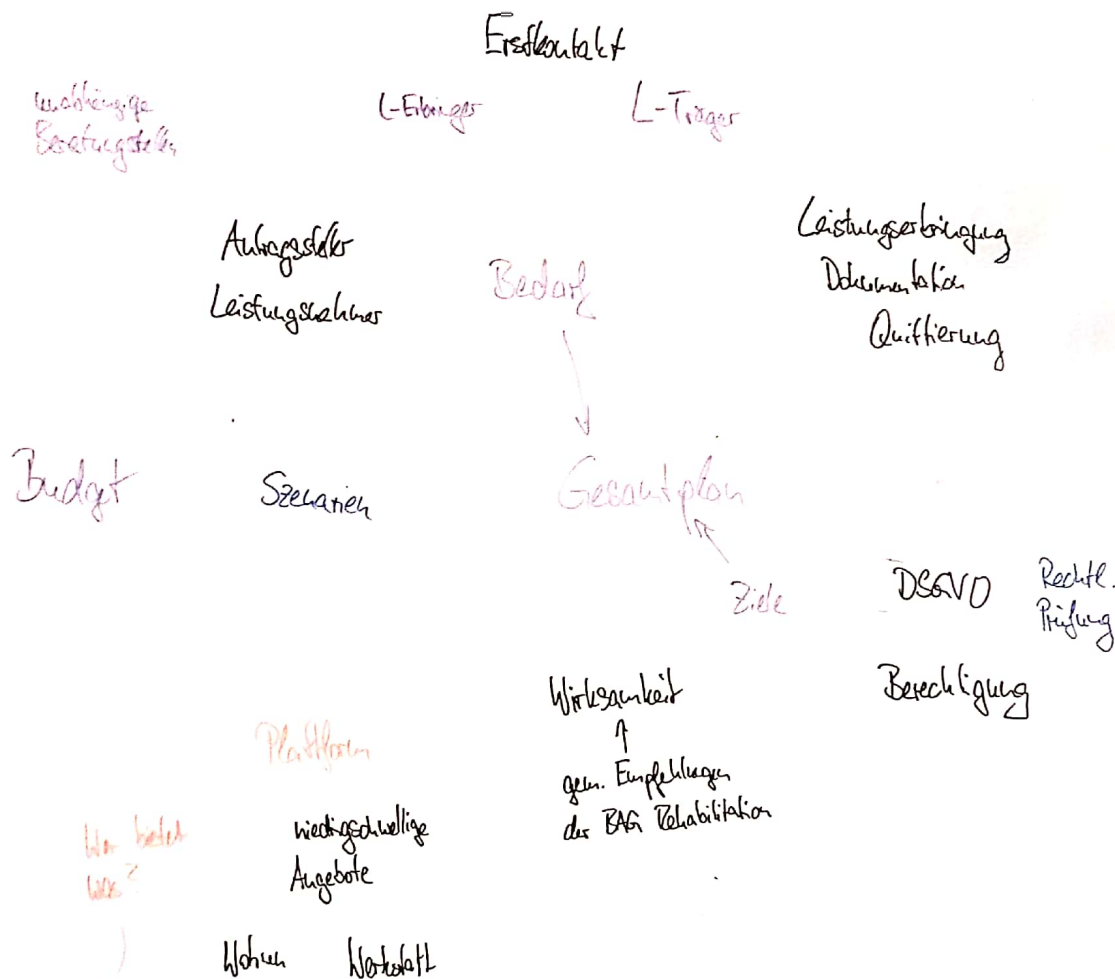 Erstkontakt
unabhängige
Beratungsstellen
L-Erbringer
L-Träger
Antragssteller
Leistungsnehmer
Bedarf
Leistungserbringung
Dokumentation
Quittierung
Budget
Szenarien
Gesamtplan
Ziele
DSGVO
Rechtl.
Prüfung
Berechtigung
Wirksamkeit
gem. Empfehlungen
der BAG Rehabilitation
Plattform
Wer bietet
was?
niedrigschwellige
Angebote
Wohnen
Werkstatt